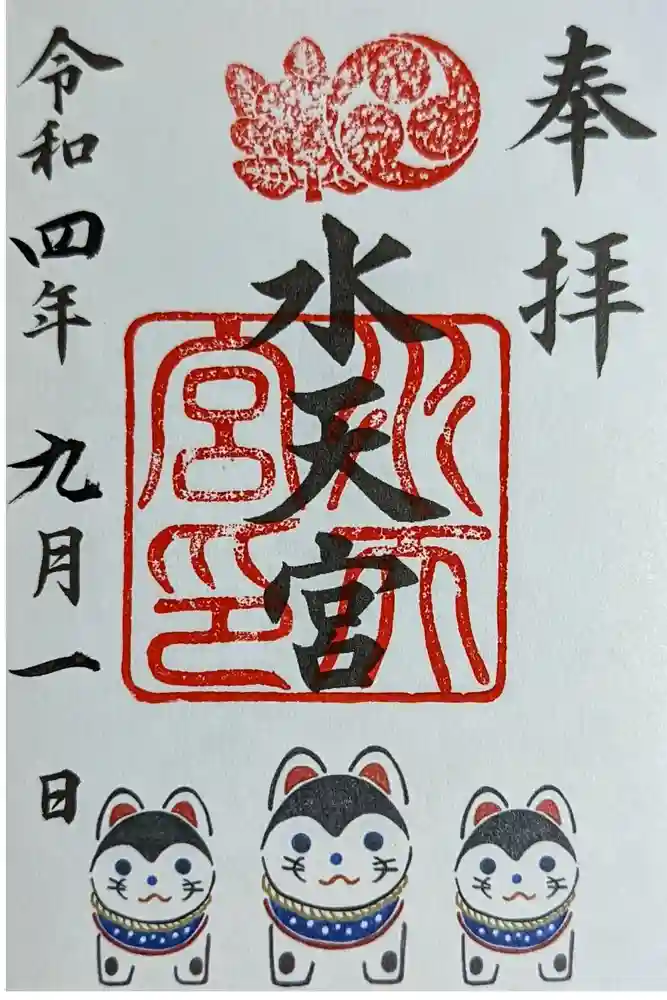 奉拝
水天宮
水天宮印
令和四年九月一日